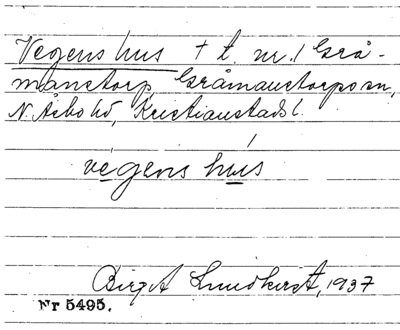 Vegens hus + t. nr. 1 Grå-
manstorp, Gråmanstorps sn,
N. Åsbo hd, Kristianstads l.
végens hús
Birgit Lundkvist, 1937
Nr 5495.